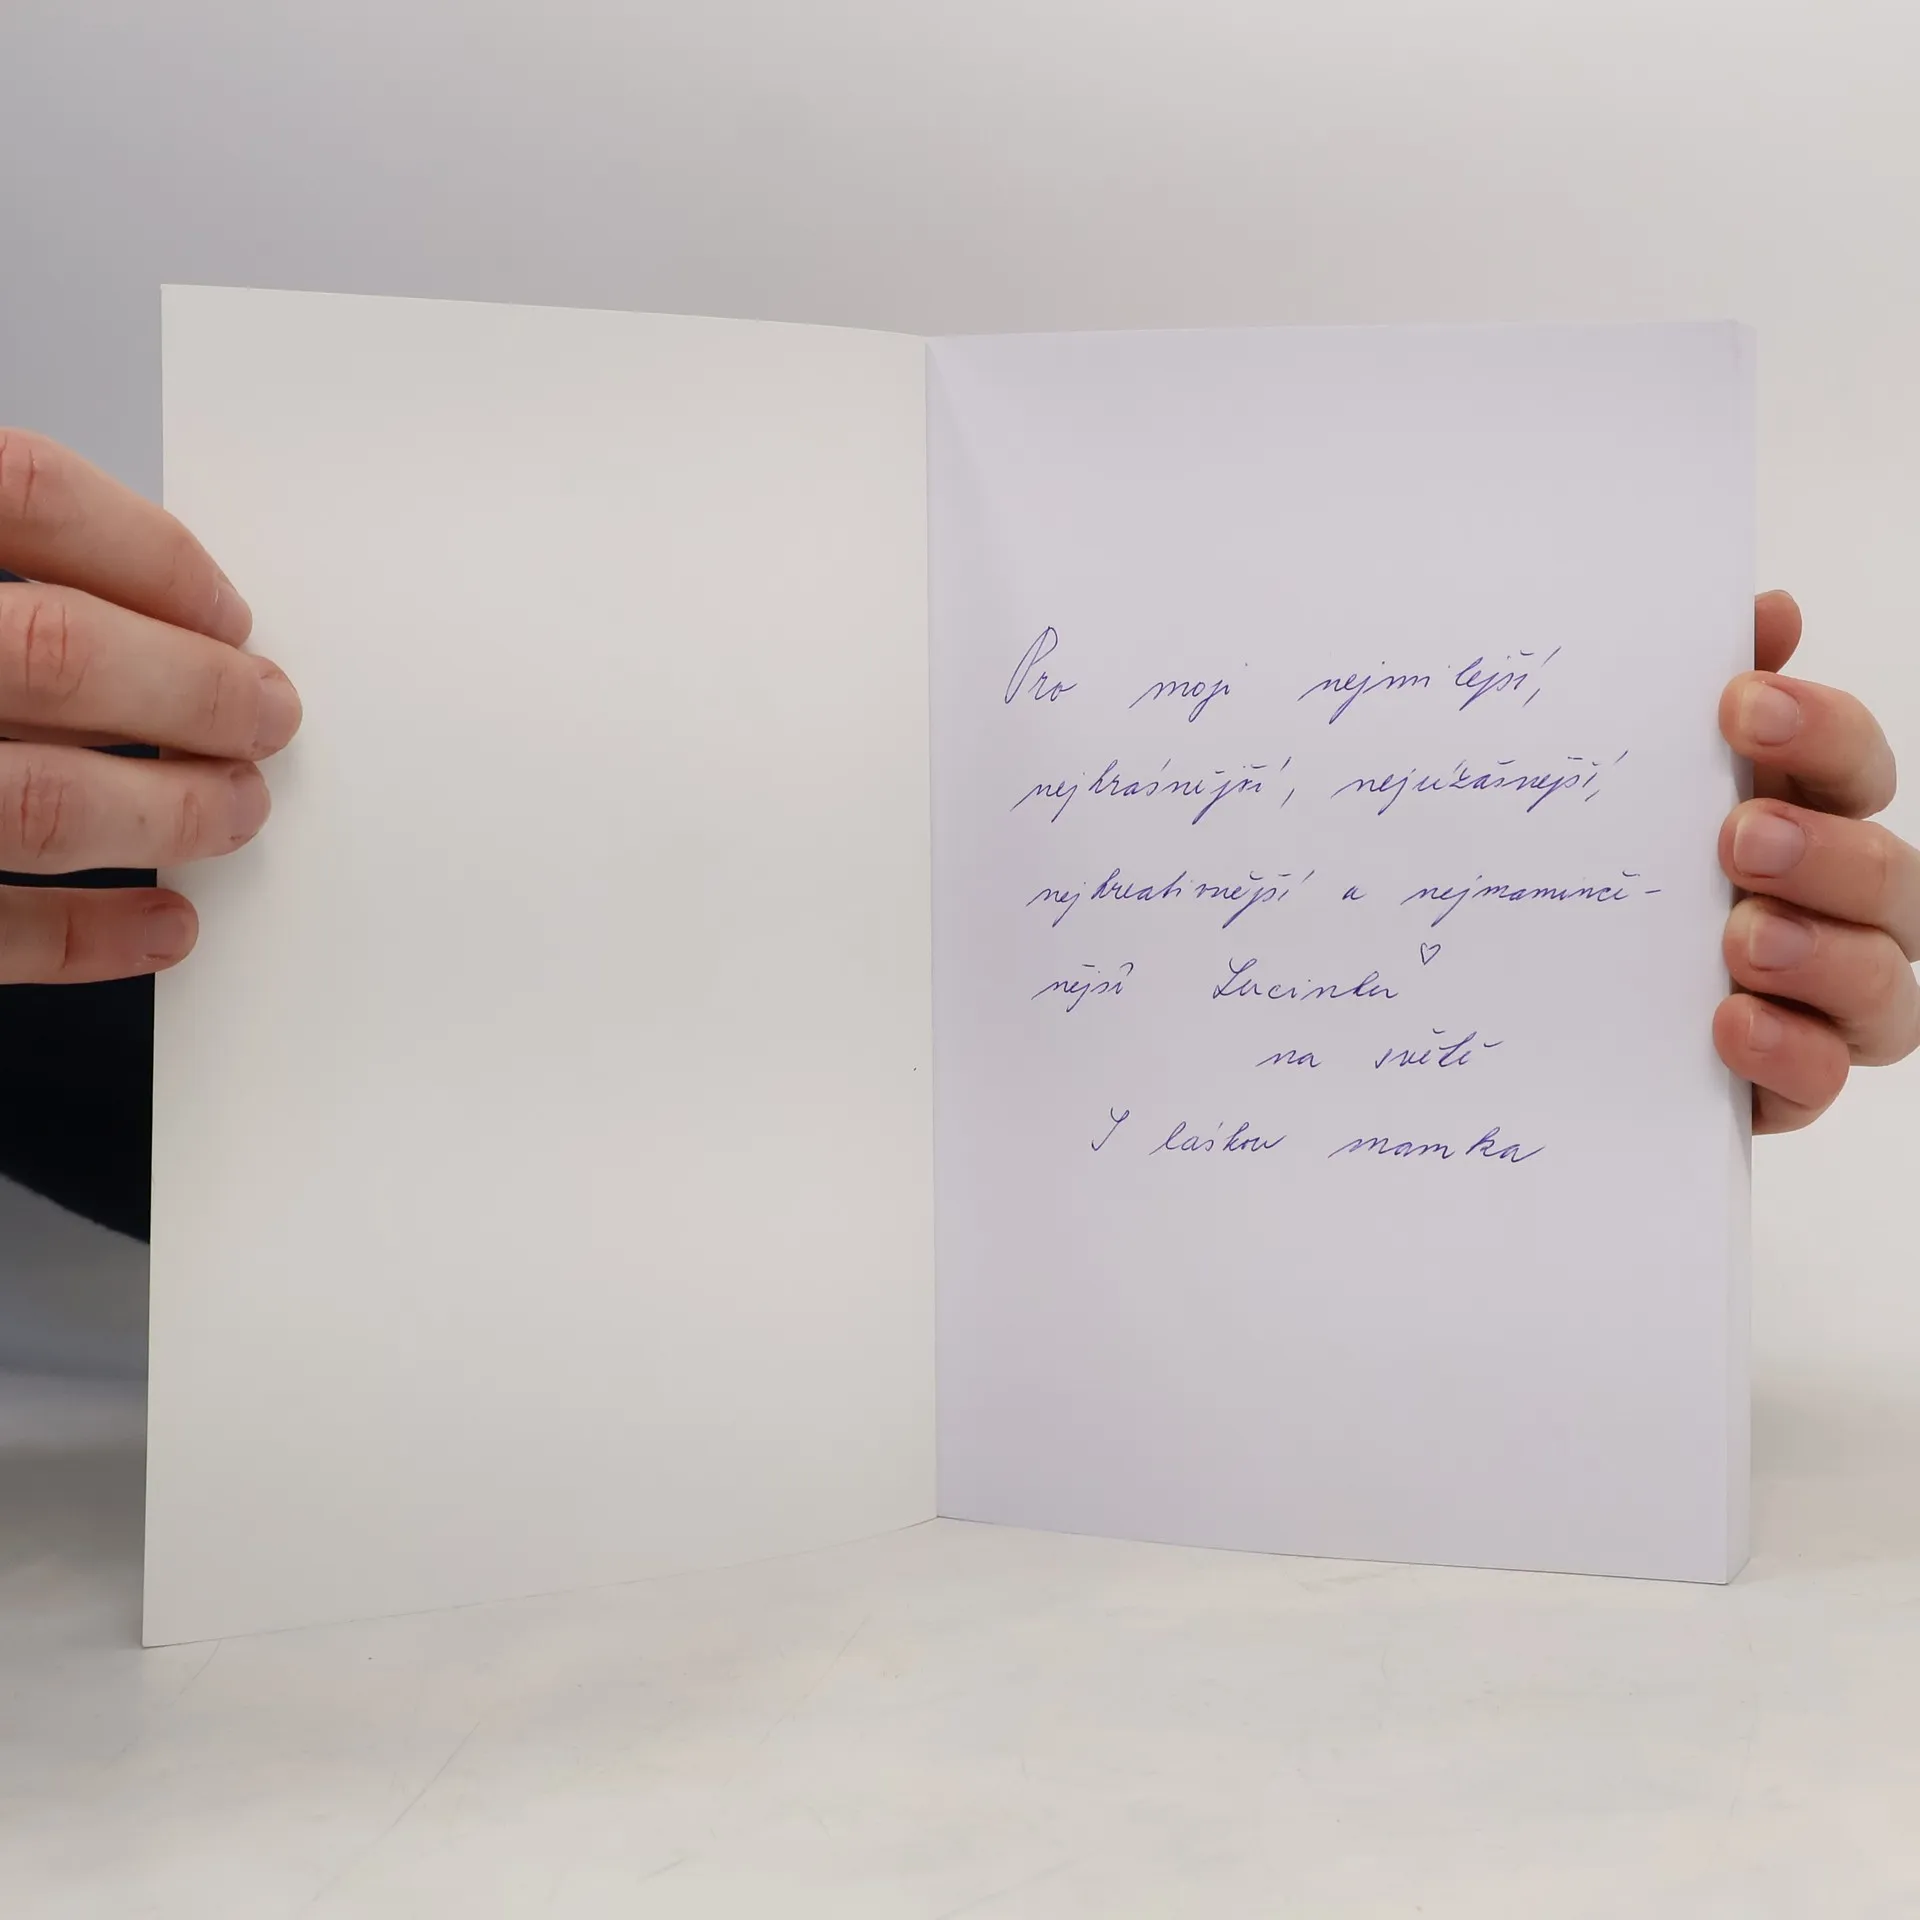 Pro moji nejmilejší,
nejkrásnější, nejúžasnější,
nejkreativnější a nejmaminči-
nější Lucinku ♡
na světě
S láskou mamka